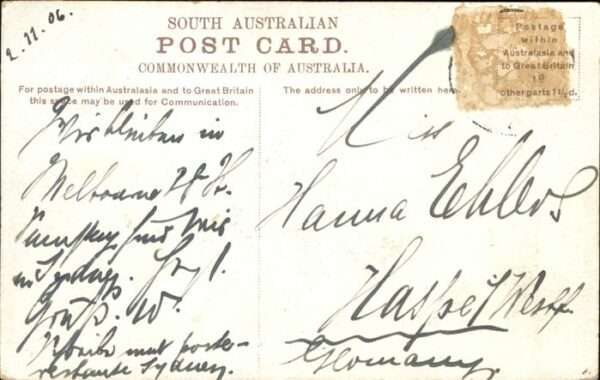 2.11.06.
SOUTH AUSTRALIAN
POST CARD.
COMMONWEALTH OF AUSTRALIA.
For postage within Australasia and to Great Britain
this space may be used for Communication.
Wir bleiben in
Melbourne 24 St.
sind wir
in Sydney.
Gruß. W.
Schreibe mal poste-
restante Sydney.
The address only to be written here.
Postage
within
Australasia and
to Great Britain
1D
other parts 1½d.
Miss
Hanna Ehlers
Haspe i/Westf
Germany.